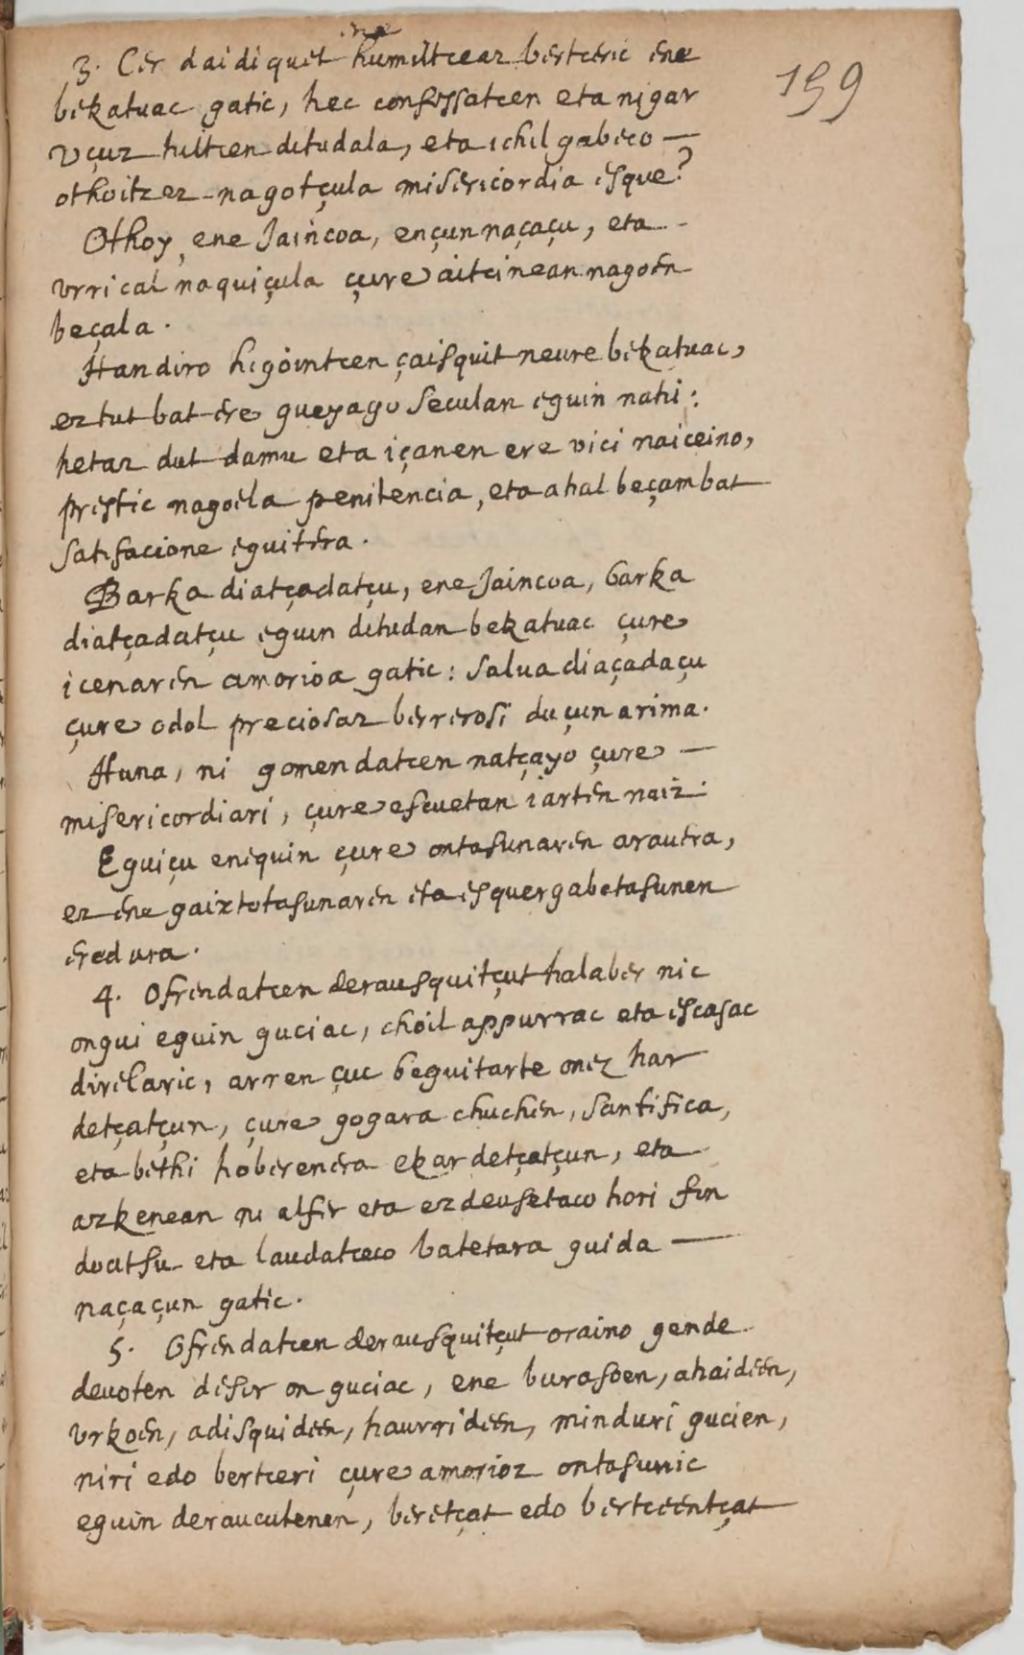 159
3. Cer daidiquet ene humiltceaz berteric ene
bekatuac gatic, hec confessatcen eta nigar
vçuz hiltcen ditudala, eta ichil gabeco —
othoitzez nagotçula misericordia esque?
Othoy, ene Jaincoa, ençun naçaçu, eta
vrrical naquiçula çure aitcinean nagoen
beçala.
Handiro higointcen çaisquit neure bekatuac,
eztut bat ere gueyago seculan eguin nahi:
hetaz dut damu eta içanen ere vici naiceino,
prestic nagoela penitencia, eta ahal beçambat
satisfacione eguitera.
Barka diatçadatçu, ene Jaincoa, barka
diatçadatçu eguin ditudan bekatuac çure
icenaren amorioa gatic: salua diaçadaçu
çure odol preciosaz berrerosi duçun arima.
Huna, ni gomendatcen natçayo çure —
misericordiari, çure escuetan iarten naiz:
Eguiçu eniquin çure ontasunaren arautra,
ez ene gaixtotasunaren eta esquergabetasunen
eredura.
4. Ofrendatcen derausquitçut halaber nic
ongui eguin guciac, choil appurrac eta escasac
direlaric, arren çuc beguitarte onez har
detçatçun, çure gogara chuchen, santifica,
eta bethi hoberenera ekar detçatçun, eta
azkenean ni alfer eta ezdeusetaco hori fin
doatsu eta laudatceco batetara guida —
naçaçun gatic.
5. Ofrendatcen derausquitçut oraino gende
deuoten desir on guciac, ene burasoen, ahaideen,
vrkoen, adisquideen, haurrideen, minduri gucien,
niri edo bertceri çure amorioz ontasunic
eguin deraucutenen, beretçat edo bertceentçat